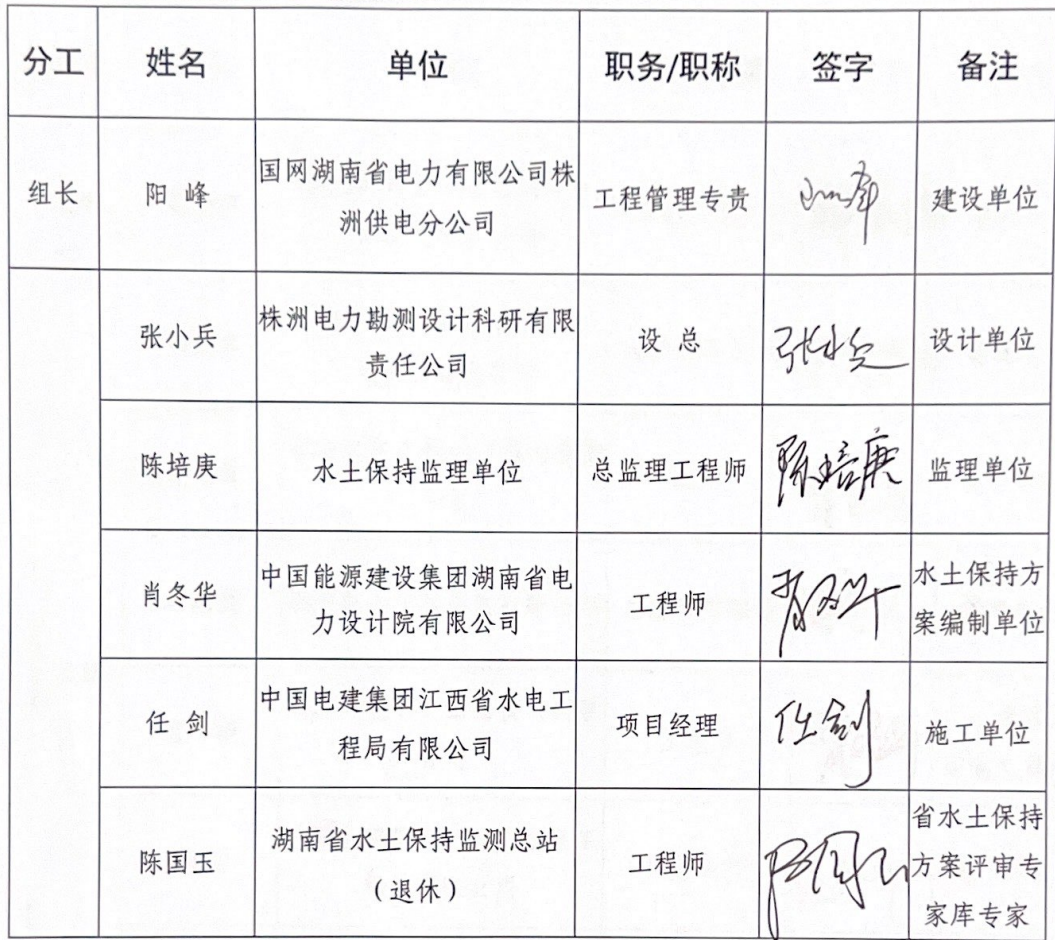 分工 姓名 单位 职务/职称 签字 备注
组长 阳 峰 国网湖南省电力有限公司株
洲供电分公司 工程管理专责 建设单位
张小兵 株洲电力勘测设计科研有限
责任公司 设 总 张小兵 设计单位
陈培庚 水土保持监理单位 总监理工程师 陈培庚 监理单位
肖冬华 中国能源建设集团湖南省电
力设计院有限公司 工程师 肖冬华 水土保持方
案编制单位
任 剑 中国电建集团江西省水电工
程局有限公司 项目经理 任剑 施工单位
陈国玉 湖南省水土保持监测总站
（退休） 工程师 陈国玉 省水土保持
方案评审专
家库专家